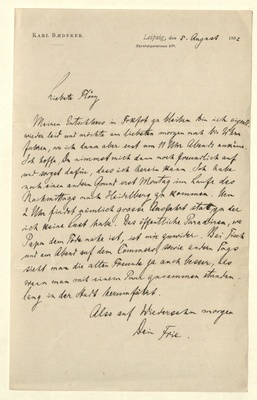 KARL BÆDEKER.
Leipzig, den 5. August
Liebste Flörg
Meinen Entschluss in Frkfrt zu bleiben bin ich eigentl.
wieder leid und möchte am liebsten morgen nach
fahren, wo ich dann aber erst um 11 Uhr Abends ankäme.
Ich hoffe, Du nimmst mich dann noch freundlich auf
und sorgst dafür, dass ich herein kann. Ich habe
noch einen andern Grund erst Montag im Laufe des
Nachmittags nach Heidelberg zu kommen. Um
2 Uhr findet nämlich grosse Ausfahrt statt zu der
ich keine Lust habe. Das öffentliche Paradiren, wo
Papa dem Fido nahe ist, ist mir zuwider. Bei Tisch
und am Abend auf dem Commers sowie andern Tags
sieht man die alten Freunde ja auch besser, als
wenn man mit einem Paul zusammen stunden-
lang in der Stadt herumfährt.
Also auf Wiedersehn morgen
Dein Fritz.